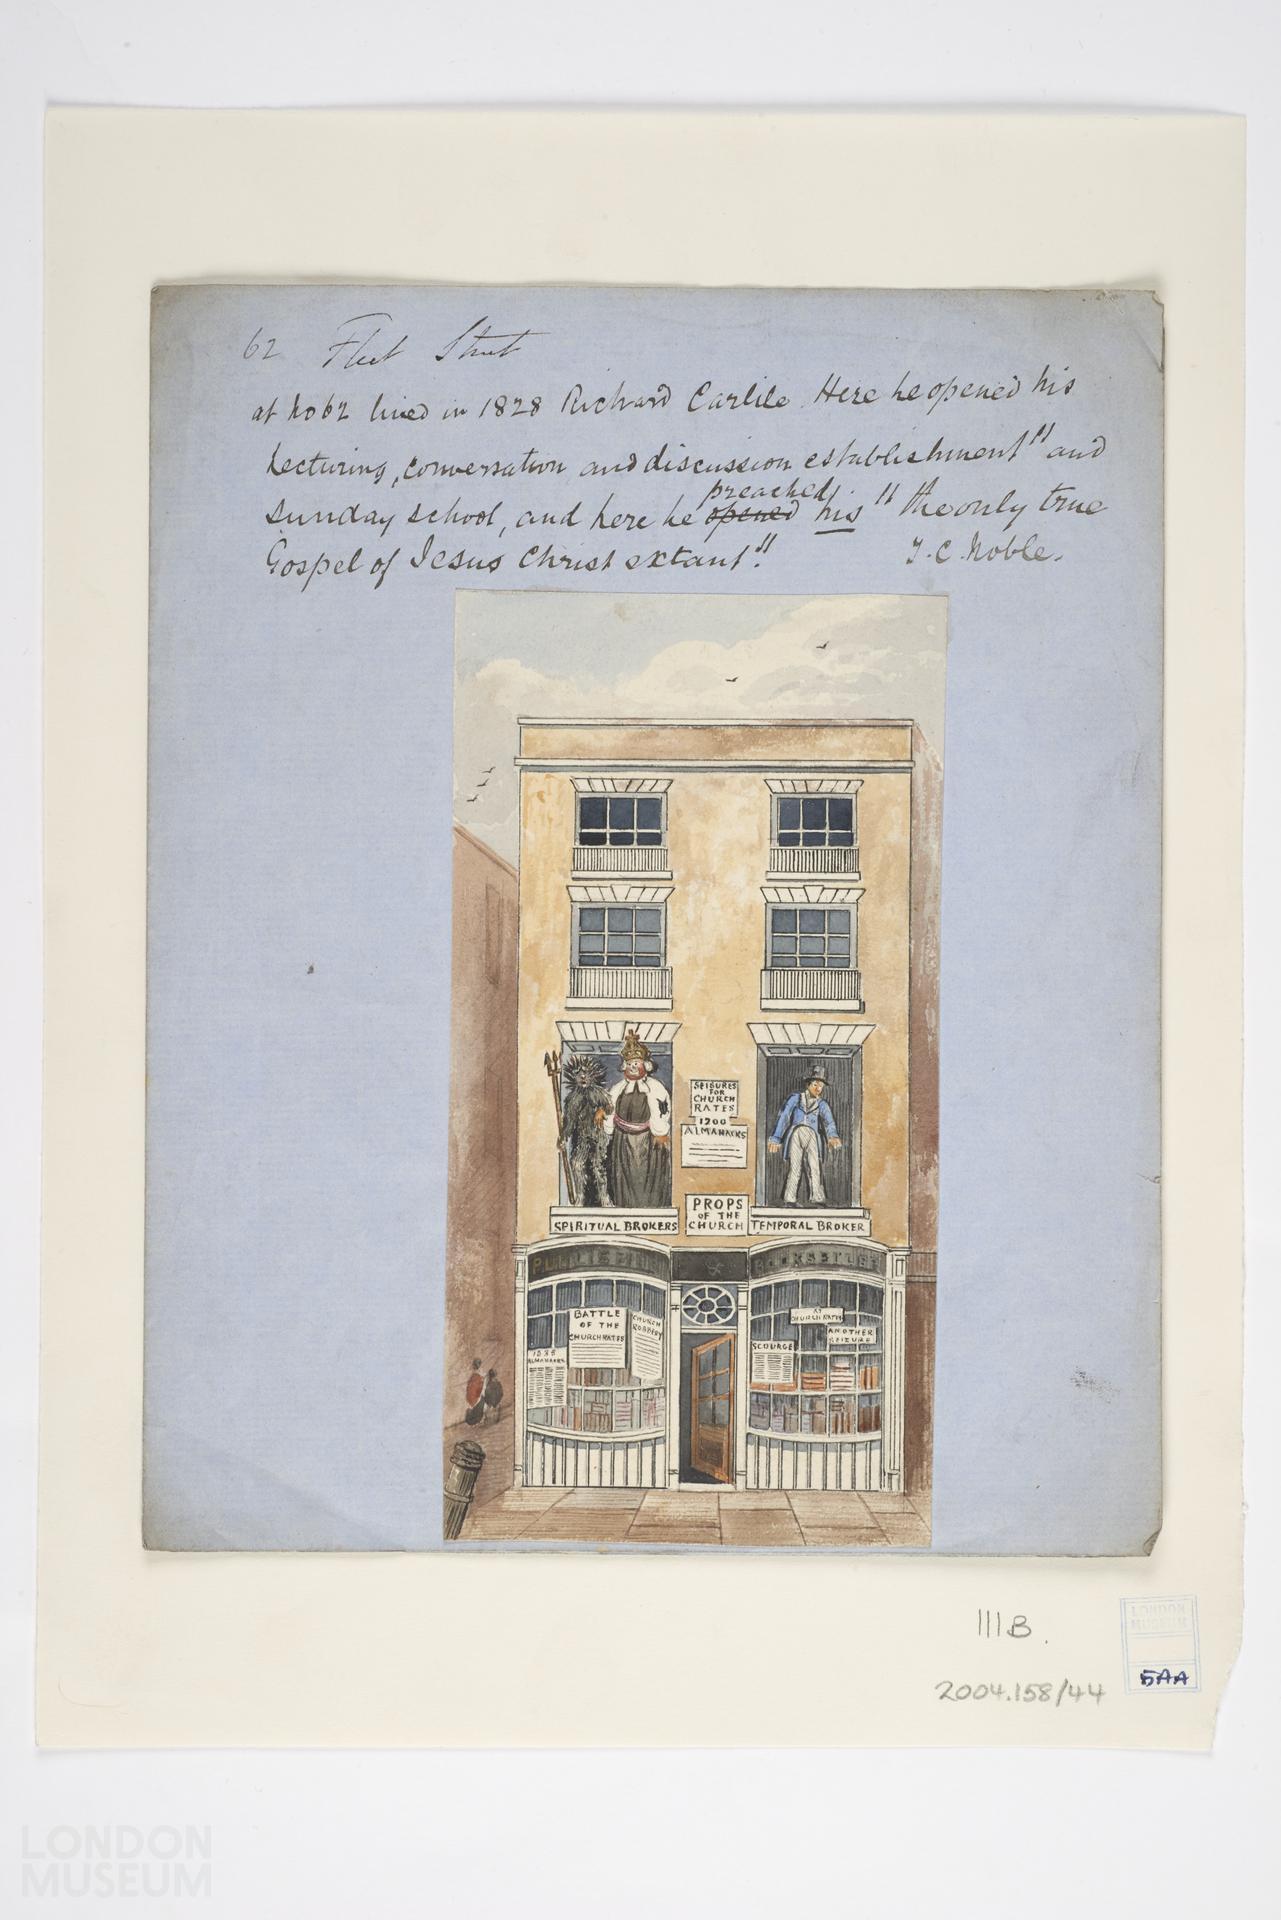 62 Fleet Street
at No 62 lived in 1828 Richard Carlile. Here he opened his
Lecturing, conversation and discussion establishment" and
Sunday school, and here he opened preached his "the only true
Gospel of Jesus Christ extant".
T. C. Noble.
SEISURES
FOR
CHURCH
RATES
1200
ALMANACKS
PROPS
OF THE
CHURCH
SPIRITUAL BROKERS
TEMPORAL BROKER
BATTLE
OF THE
CHURCH RATES
CHURCH
ROBBERY
ALMANACKS
CHURCH RATE
ANOTHER
SEIZURE
SCOURGE
IIIB.
2004.158/44
LONDON
MUSEUM
5AA
LONDON
MUSEUM